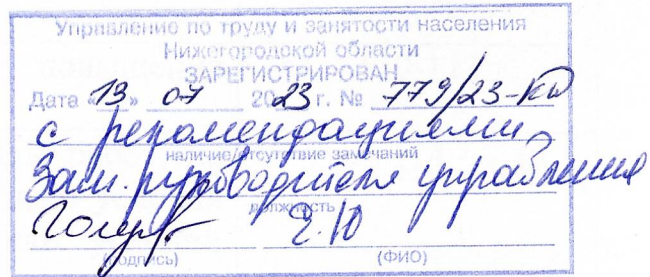 Управление по труду и занятости населения
Нижегородской области
ЗАРЕГИСТРИРОВАН
Дата «13» 07 2023 г. № 779/23-КД
с рекомендациями
наличие/отсутствие замечаний
Зам. руководителя управления
должность
(подпись) (ФИО)